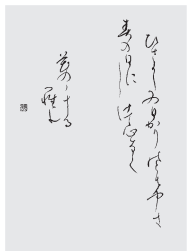 ひさかたのひかりのとけき
春の日にしつ心なく
花のちる
らむ